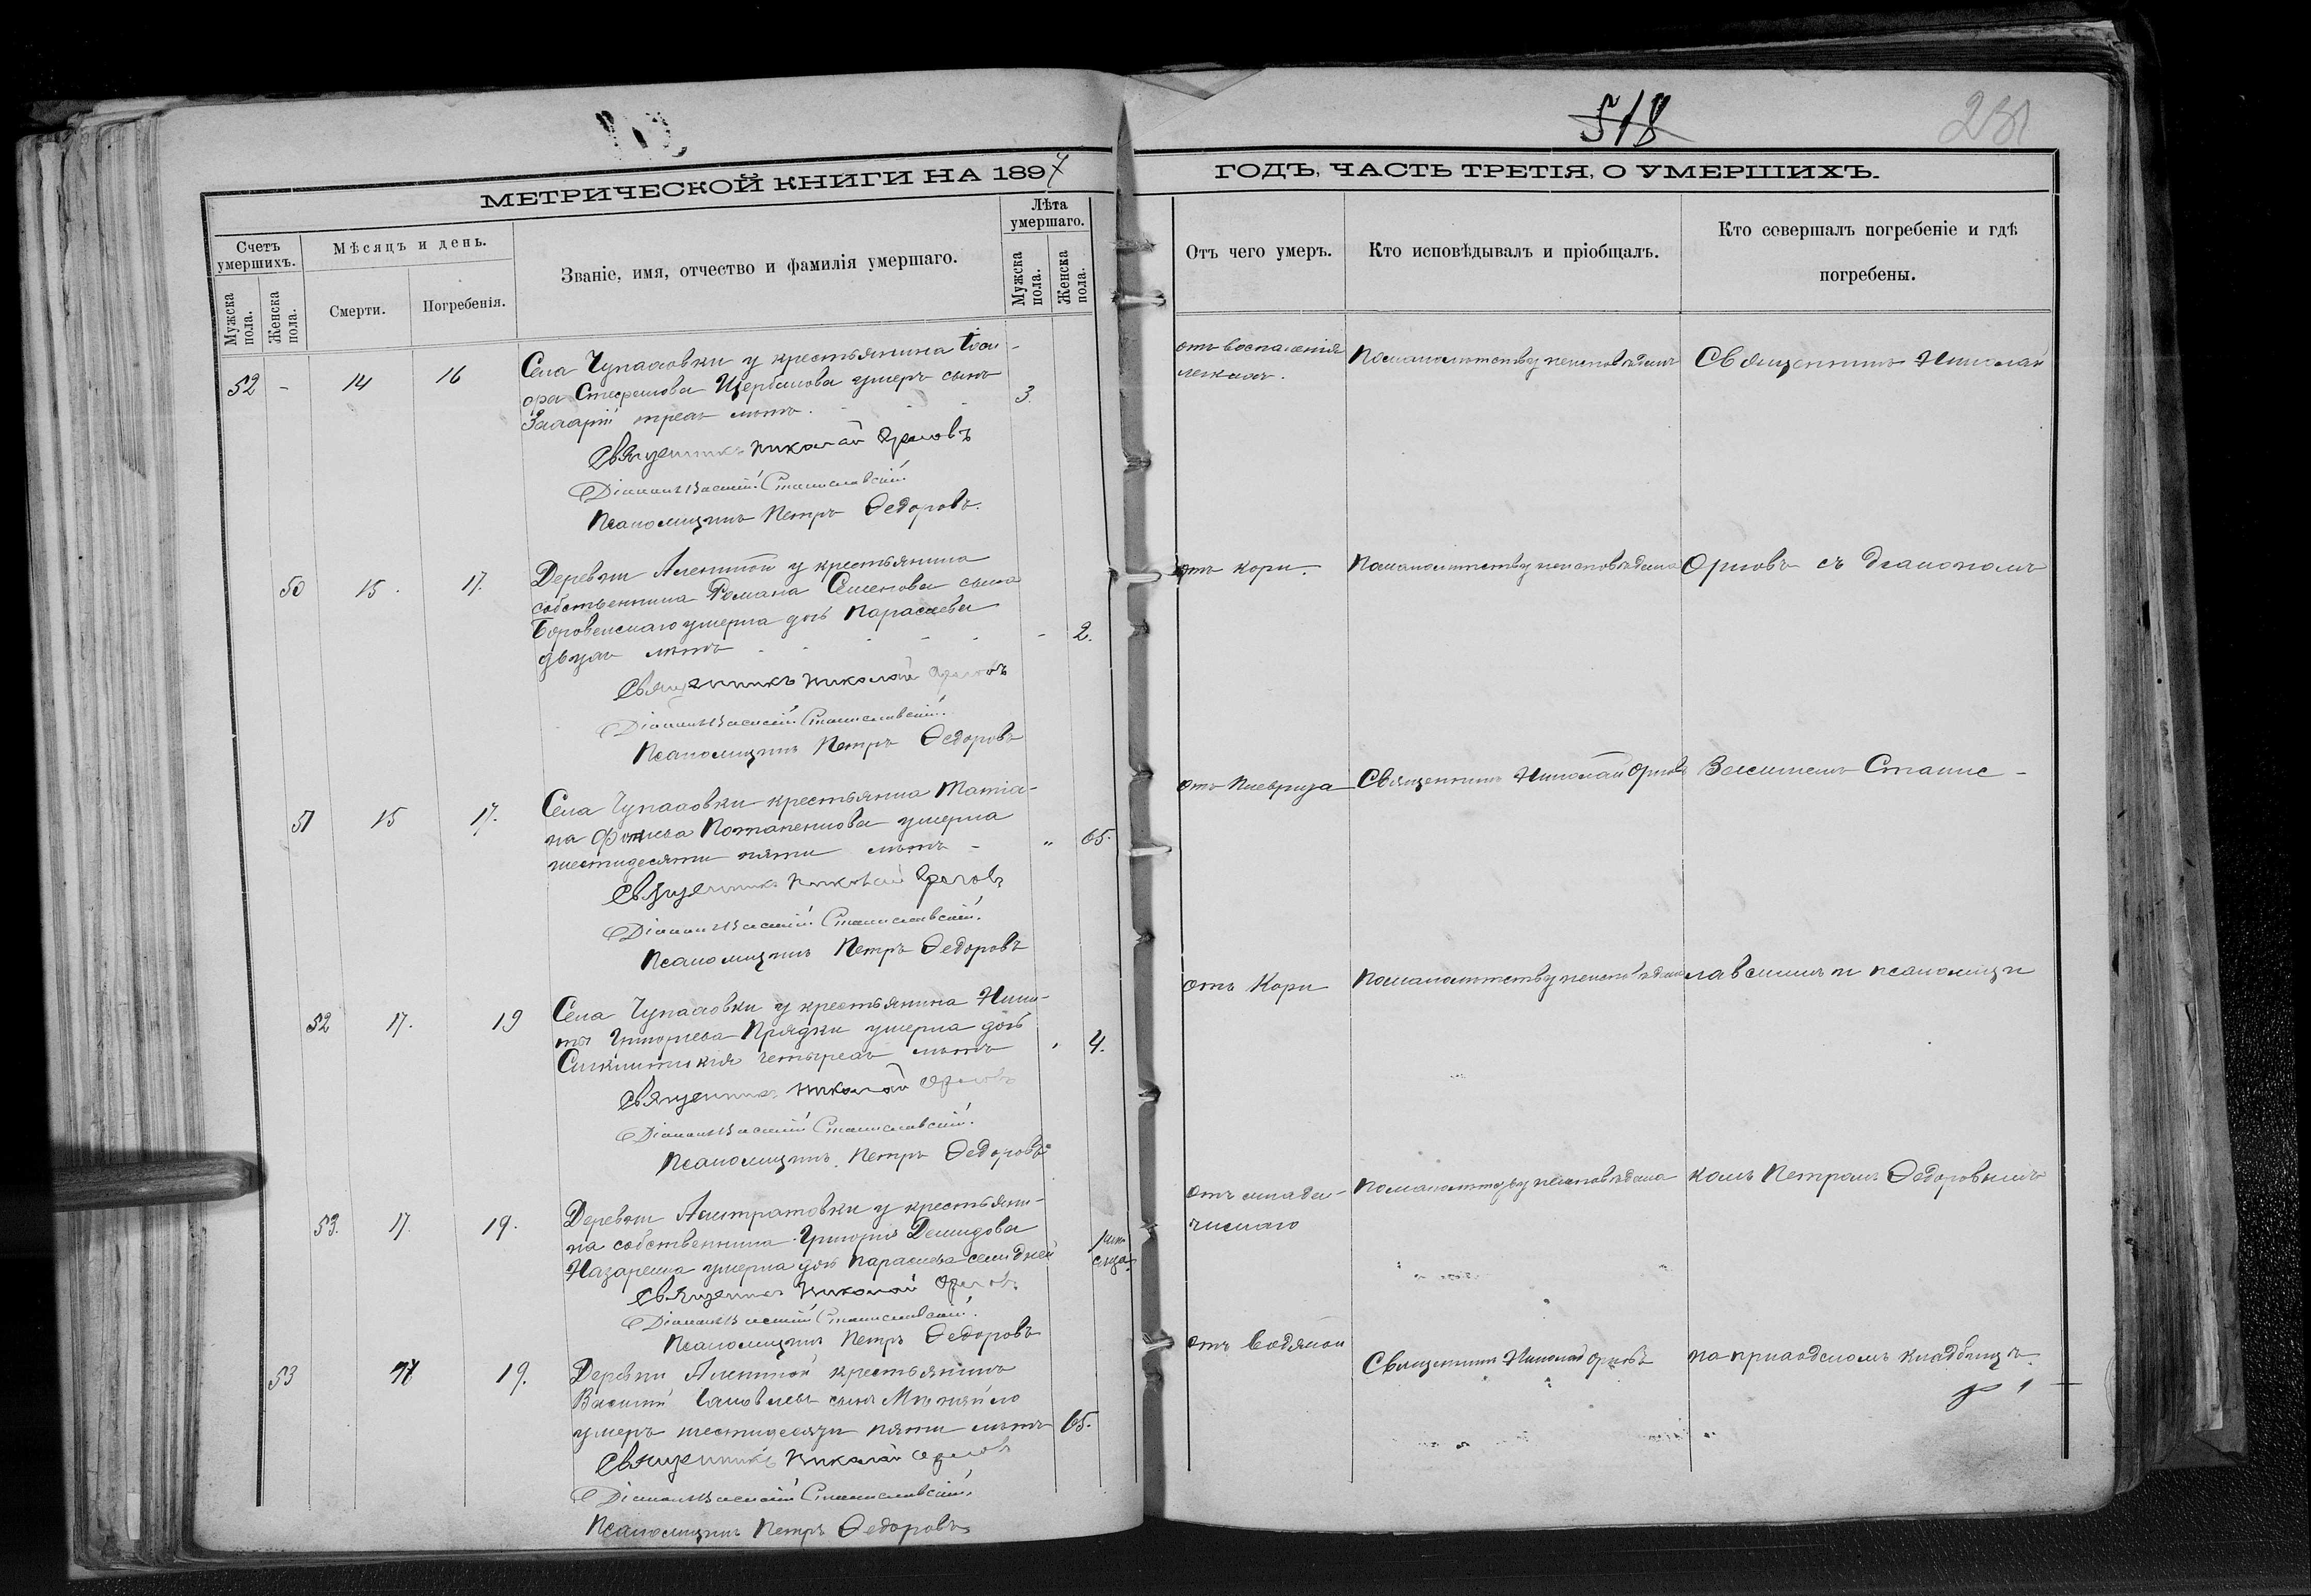 518
281
МЕТРИЧЕСКОЙ КНИГИ НА 1897
ГОДЪ, ЧАСТЬ ТРЕТІЯ, О УМЕРШИХЪ.
Счетъ умершихъ.
Мужска пола.
Женска пола.
Мѣсяцъ и день.
Смерти.
Погребенія.
Званіе, имя, отчество и фамилія умершаго.
Лѣта умершаго.
Мужска пола.
Женска пола.
Отъ чего умеръ.
Кто исповѣдывалъ и пріобщалъ.
Кто совершалъ погребеніе и гдѣ
погребены.
52 - 14 16
Села Чупаховки у крестьянина
Стефанова Щербакова умеръ сынъ
Захарій трехъ лѣтъ. 3.
Священникъ Николай Орловъ
Діаконъ Василій Станиславскій.
Псаломщикъ Петръ Ѳедоровъ.
отъ воспаленія
легкихъ.
По малолѣтству неисповѣданъ
Священникъ Николай
50 15. 17.
Деревни у крестьянина
собственника Романа Семенова сына
Боровенскаго умерла дочь Параскева
двухъ лѣтъ - 2.
Священникъ Николай Орловъ
Діаконъ Василій Станиславскій.
Псаломщикъ Петръ Ѳедоровъ
отъ кори.
По малолѣтству неисповѣдана
Орловъ съ діакономъ
51 15 17.
Села Чупаховки крестьянка Татіа-
на Фокиева Потапенкова умерла
шестидесяти пяти лѣтъ - " 65.
Священникъ Николай Орловъ
Діаконъ Василій Станиславскій.
Псаломщикъ Петръ Ѳедоровъ
Отъ Плеврита
Священникъ Николай Орловъ
Василіемъ Станис-
52 17. 19
Села Чупаховки у крестьянина Ники-
ты Григорьева Прядки умерла дочь
Синклитикія четырехъ лѣтъ 4.
Священникъ Николай Орловъ
Діаконъ Василій Станиславскій.
Псаломщикъ Петръ Ѳедоровъ
Отъ Кори
По малолѣтству неисповѣдана
лавскимъ и псаломщи
53. 17. 19.
Деревни у крестьяни-
на собственника Григорія Демидова
Назаренка умерла дочь Параскева семи дней
Священникъ Николай Орловъ
Діаконъ Василій Станиславскій.
Псаломщикъ Петръ Ѳедоровъ
Отъ младен-
ческаго
По малолѣтству неисповѣдана
комъ Петромъ Ѳедоровымъ
53 17 19.
Деревни крестьянинъ
Василій Яковлевъ сынъ
умеръ шестидесяти пяти лѣтъ 65.
Священникъ Николай Орловъ
Діаконъ Василій Станиславскій.
Псаломщикъ Петръ Ѳедоровъ
Отъ водяной
Священникъ Николай Орловъ
на приходскомъ кладбищѣ.